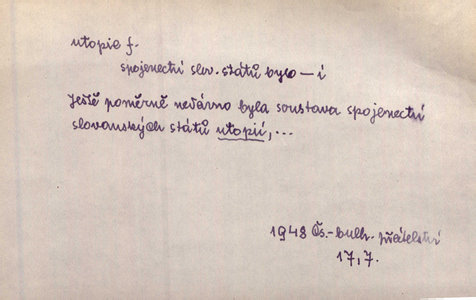 utopie f.
spojenectví slov. států bylo – í
Ještě poměrně nedávno byla soustava spojenectví
slovanských států utopií, ...
1948 Čs.-bulh. přátelství
17,7.